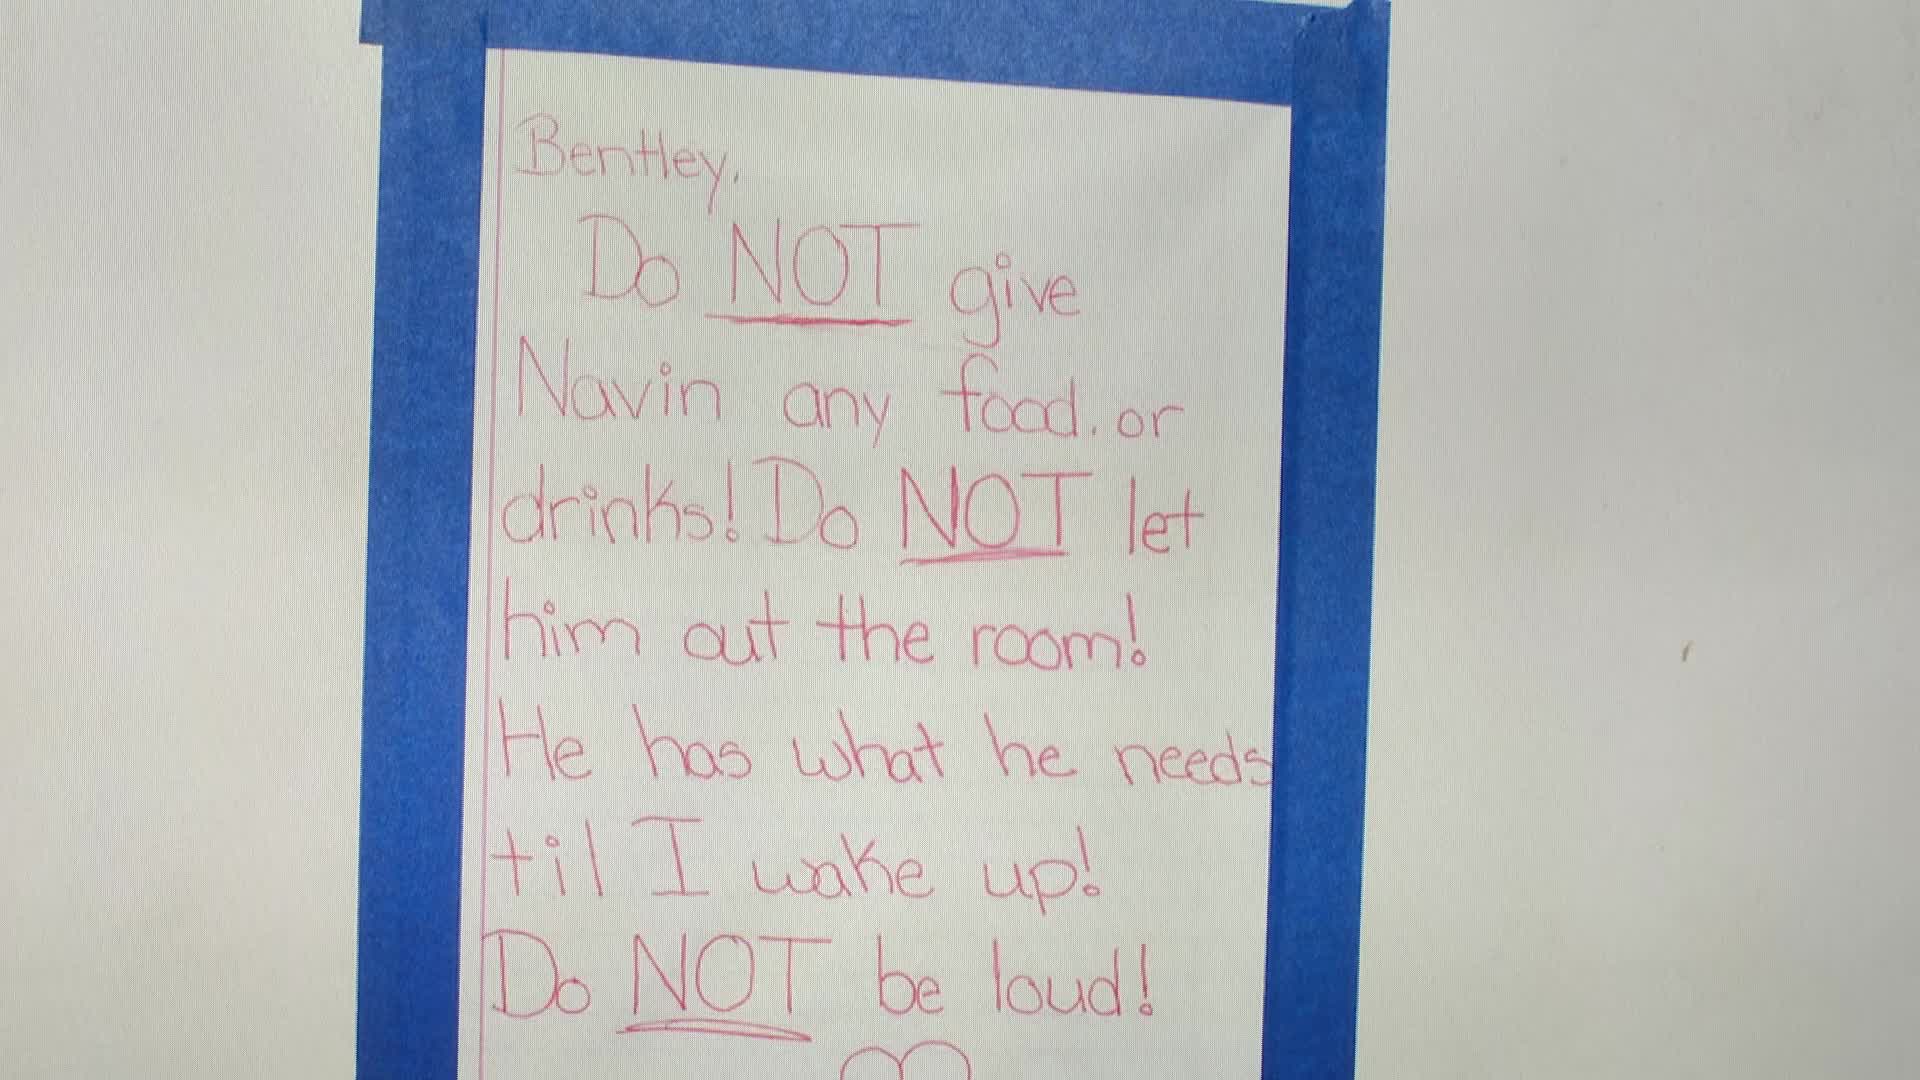 Bentley,
Do NOT give
Navin any food. or
drinks! Do NOT let
him out the room!
He has what he needs
til I wake up!
Do NOT be loud!